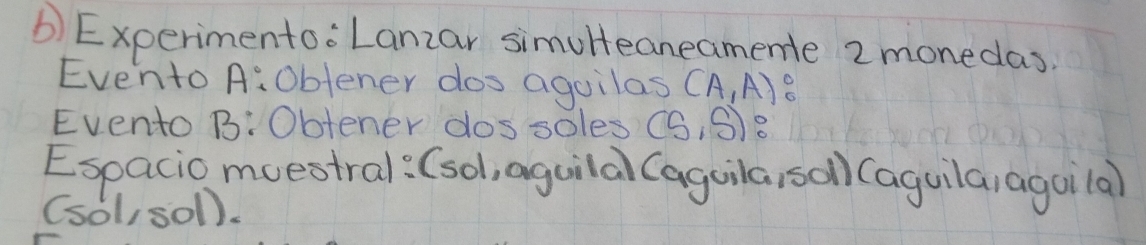 b) Experimento: Lanzar simulteaneamente 2 monedas.
Evento A: Obtener dos aguilas (A,A):
Evento B: Obtener dos soles (S,S):
Espacio muestral: (sol, aguila) (aguila, sol) (aguila, aguila)
(sol, sol).